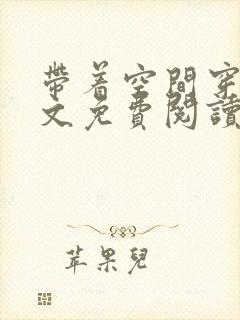 帶着空間穿
文免費閱讀
苹果兒